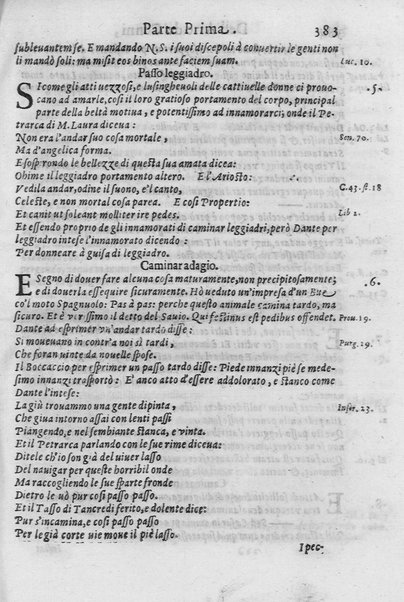 Parte Prima. 383
subleuantem se. E mandando N.S. i suoi discepoli à conuertir le genti non
li mandò soli: ma misit eos binos ante faciem suam. Luc. 10.
Passo leggiadro.
SI come gli atti uezzosi, e lusingheuoli delle cattiuelle donne ci prouo- .5.
cano ad amarle, cosi il loro gratioso portamento del corpo, principal
parte della beltà motiua, e potentissimo ad innamorarci, onde il Pe-
trarca di M. Laura diceua:
Non era l'andar suo cosa mortale, Son. 70.
Ma d'angelica forma.
E sospirando le bellezze di questa sua amata dicea:
Ohime il leggiadro portamento altero. E l'Ariosto:
Vedila andar, odine il suono, e'l canto, C.43. st. 18
Celeste, e non mortal cosa parea. E cosi Propertio:
Et canit ut soleant molliter ire pedes. Lib 2.
Et essendo proprio de gli innamorati di caminar leggiadri, però Dante per
leggiadro intese l'innamorato dicendo:
Per donneare à guisa di leggiadro.
Caminar adagio.
E Segno di douer fare alcuna cosa maturamente, non precipitosamente; .6.
e di douerla essequire sicuramente. Hò ueduto un'impresa d'un Bue
co'l moto Spagnuolo: Pas à pas: perche questo animale camina tardo, ma
sicuro. Et è verissimo il detto del Sauio. Qui festinus est pedibus offendet. Prou. 19.
Dante ad esprimer vn'andar tardo disse:
Si moueuano in contr'a noi sì tardi, Purg. 29.
Che foran uinte da nouelle spose.
Il Boccaccio per esprimer un passo tardo disse: Piede innanzi piè se mede-
simo innanzi trasportò: E' anco atto d'essere addolorato, e stanco come
Dante l'intese:
La già trouammo una gente dipinta, Infer. 23.
Che giua intorno assai con lenti passi
Piangendo, e nel sembiante stanca, e vinta.
Et il Petrarca parlando con le sue rime diceua:
Ditele ch'io son già del uiuer lasso
Del nauigar per queste horribil onde
Ma raccogliendo le sue sparte fronde
Dietro le uò pur cosi passo passo.
Et il Tasso di Tancredi ferito, e dolente dice:
Pur s'incamina, e cosi passo passo
Per le già corte uie moue il piè lasso.
Ipec-